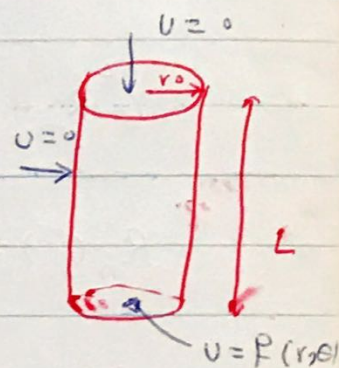 U = 0
r0
U = 0
L
U = f(r,θ)